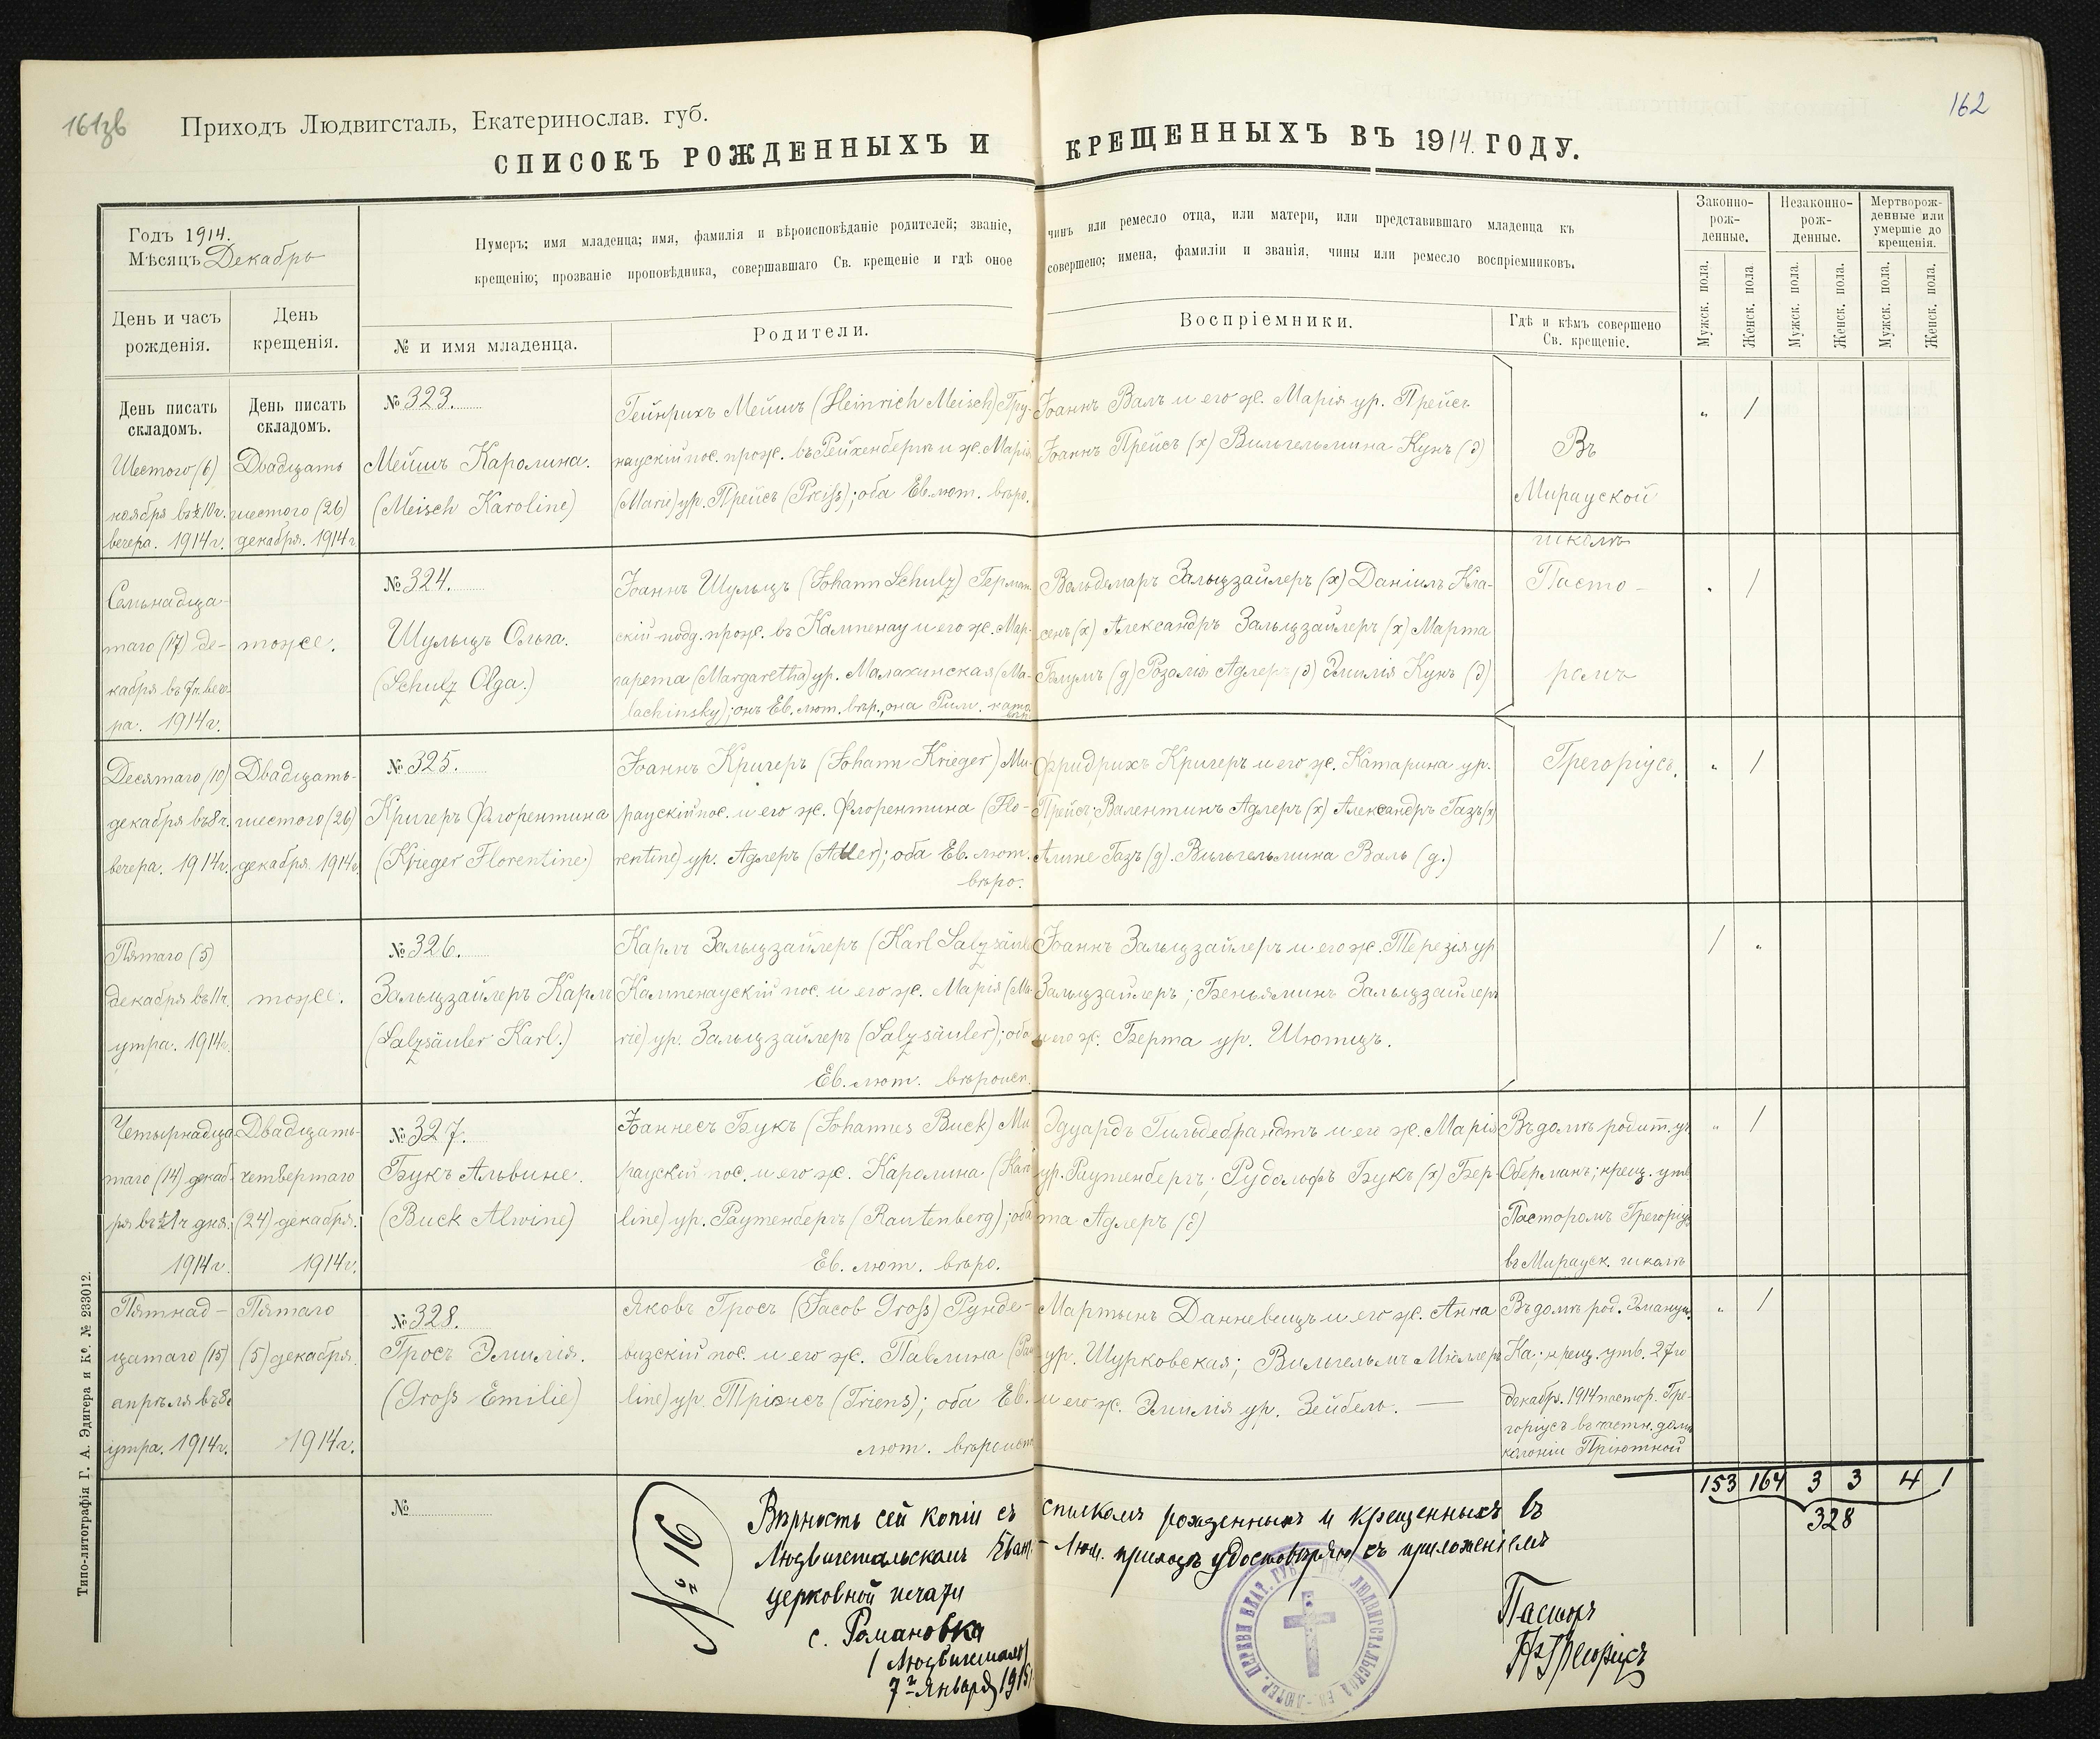 161зв
162
Приходъ Людвигсталь, Екатеринослав. губ.
СПИСОКЪ РОЖДЕННЫХЪ И КРЕЩЕННЫХЪ ВЪ 1914. ГОДУ.
Годъ 1914.
Мѣсяцъ Декабрь
Нумеръ; имя младенца; имя, фамилія и вѣроисповѣданіе родителей; званіе, чинъ или ремесло отца, или матери, или представившаго младенца къ
крещенію; прозваніе проповѣдника, совершавшаго Св. крещеніе и гдѣ оное совершено; имена, фамиліи и званія, чины или ремесло воспріемниковъ.
Законно-
рож-
денные.
Незаконно-
рож-
денные.
Мертворож-
денные или
умершіе до
крещенія.
Мужск. пола.
Женск. пола
Мужск. пола.
Женск. пола.
Мужск. пола.
Женск. пола.
День и часъ
рожденія.
День
крещенія.
№ и имя младенца.
Родители.
Воспріемники.
Гдѣ и кѣмъ совершено
Св. крещеніе.
День писать
складомъ.
День писать
складомъ.
Шестого (6)
ноября въ 10ч.
вечера. 1914г.
Двадцать
шестого (26)
декабря. 1914г
№ 323.
Мейшъ Каролина.
(Meisch Karoline)
Гейнрихъ Мейшъ (Heinrich Meisch) Гру-
наускій пос. прож. въ Рейхенбергѣ и ж. Марія
(Marie) ур. Прейсъ (Preiß); оба Ев. лют. вѣро.
Іоаннъ Валъ и его ж. Марія ур. Прейсъ
Іоаннъ Прейсъ (х) Вильгельмина Кунъ (д)
Въ
Мирауской
школѣ
Пасто-
ромъ
Грегоріусъ.
" /
Семнадца-
таго (17) де-
кабря въ 7ч. вече-
ра. 1914г.
тоже.
№ 324.
Шульцъ Ольга.
(Schulz Olga.)
Іоаннъ Шульцъ (Johann Schulz) Герман-
скій подд. прож. въ Кампенау и его ж. Мар-
гарета (Margaretha) ур. Малахинская (Ma-
lachinsky); онъ Ев. лют. вѣр., она Рим. кат.
Вольдемаръ Зальцзайлеръ (х) Даніилъ Кла-
сенъ (х) Александръ Зальцзайлеръ (х) Марта
Блумъ (д) Розалія Адлеръ (д) Эмилія Кунъ (д)
" /
Десятаго (10)
декабря въ 8ч.
вечера. 1914г.
Двадцать-
шестого (26)
декабря. 1914г.
№ 325.
Кригеръ Флорентина
(Krieger Florentine)
Іоаннъ Кригеръ (Johann Krieger) Ми-
раускій пос. и его ж. Флорентина (Flo-
rentine) ур. Адлеръ (Adler); оба Ев. лют.
вѣро.
Фридрихъ Кригеръ и его ж. Катарина ур.
Прейсъ; Валентинъ Адлеръ (х) Александръ Газъ (х)
Алине Газъ (д). Вильгельмина Валь (д.)
" /
Пятаго (5)
декабря въ 11ч.
утра. 1914г.
тоже.
№ 326.
Зальцзайлеръ Карлъ
(Salzsäuler Karl.)
Карлъ Зальцзайлеръ (Karl Salzsäuler
Кампенаускій пос. и его ж. Марія (Ma-
rie) ур. Зальцзайлеръ (Salzsäuler); оба
Ев. лют. вѣроисп.
Іоаннъ Зальцзайлеръ и его ж. Терезія ур
Зальцзайлеръ; Беньяминъ Зальцзайлеръ
и его ж. Берта ур. Шютцъ.
/ "
Четырнадца-
таго (14) декаб-
ря въ 1ч дня.
1914г.
Двадцать-
четвертаго
(24) декабря.
1914г.
№ 327.
Букъ Альвине.
(Buck Alwine)
Іоаннесъ Букъ (Johannes Buck) Ми
раускій пос. и его ж. Каролина (Karo
line) ур. Раутенбергъ (Rautenberg); оба
Ев. лют. вѣро.
Эдуардъ Гильдебрандтъ и его ж. Марія
ур. Раутенбергъ; Рудольфъ Букъ (х) Бер-
та Адлеръ (д)
Въ домѣ родит. уч.
Оберманъ; крещ. утв
Пасторомъ Грегоріус
въ Мирауск. школѣ
" /
Пятнад-
цатаго (15)
апрѣля въ 8ч
утра. 1914г.
Пятаго
(5) декабря.
1914г.
№ 328.
Гросъ Эмилія.
(Groß Emilie)
Яковъ Гросъ (Jacob Groß) Рунде-
визскій пос. и его ж. Павлина (Pau
line) ур. Тріенсъ (Triens); оба Ев.
лют. вѣроисп
Мартынъ Данневицъ и его ж. Анна
ур. Шурковская; Вильгельмъ Мюллеръ
и его ж. Эмилія ур. Зейбель. —
Въ домѣ род. Эмануи
Ка; крещ. утв. 27го
декабр. 1914 пастор. Гре-
горіусъ въ частн. домѣ
колоніи Пріютной
" /
№
153 164 3 3 4 1
328
№ 16
Вѣрность сей копіи съ спискомъ рожденныхъ и крещенныхъ въ
Людвигстальскомъ Еванг.-Лют. приходѣ удостовѣряю съ приложеніемъ
церковной печати
с. Романовка
(Людвигсталь)
7го Января 1915
Пасторъ
Грегоріусъ
Типо-литографія Г. А. Эдигера и Ко. № 233012.